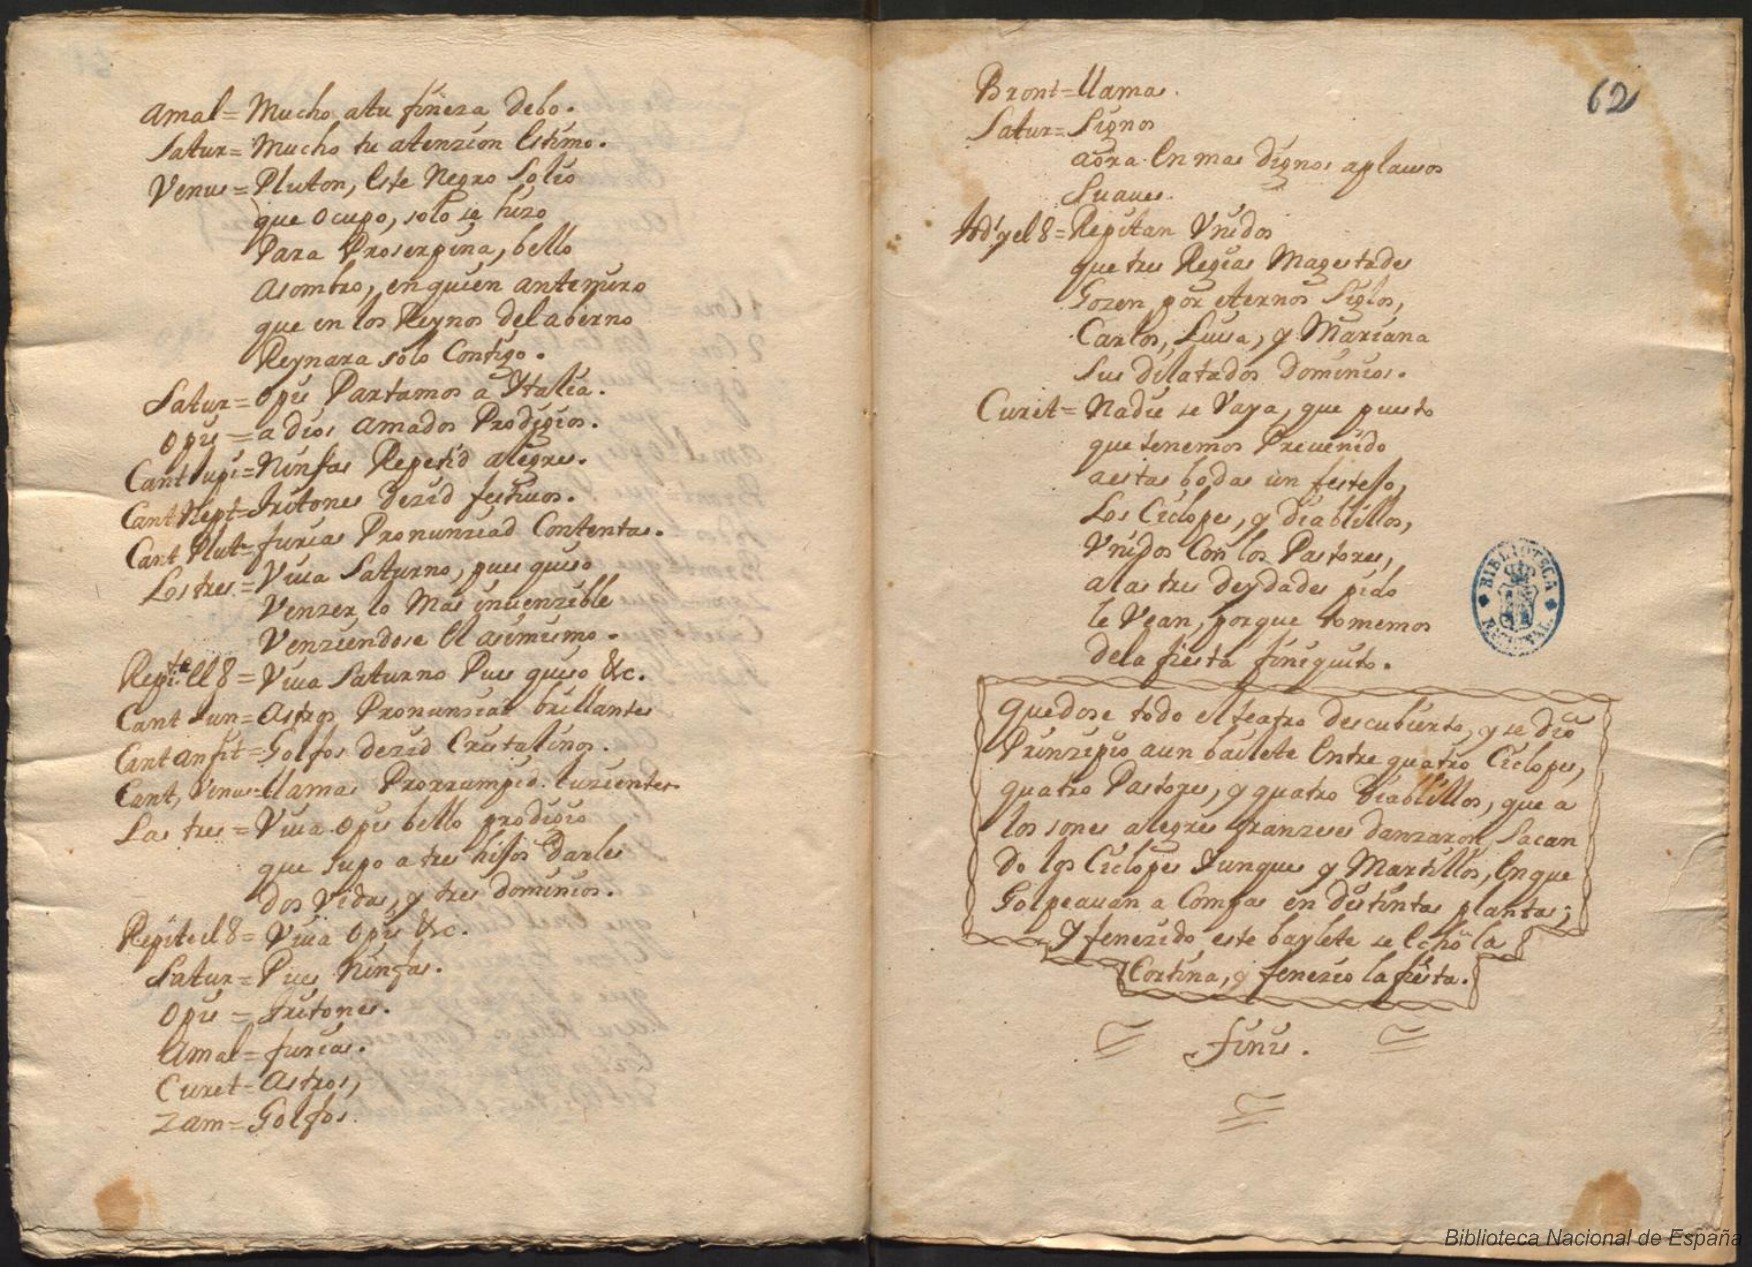 Amal = Mucho atu fineza Debo.
Satur = Mucho tu atenzion Estimo.
Venus = Pluton, Este Negro Solio
que ocupo, solo se hizo
Para Proserpina, bello
asombro, en quien antemiro
que en los Reynos del aberno
Reynara solo Contigo.
Satur = Opis Partamos a Ytalia.
Opis = a dios amados Prodigios.
Cant Iupi = Ninfas Repetid alegres.
Cant Nept = Tritones dezid festiuos.
Cant Plut = furias Pronunziad Contentas.
Los tres = Viua Saturno, pues quiso
Venzer lo Mas inuenzible
Venziendose El asimismo.
Repite El 8 = Viua Saturno Pues quiso &c.
Cant Iun = Astros Pronunziad brillantes
Cant anfit = Golfos dezid Cristalinos.
Cant, Venus = llamas Prorrumpid luzientes
Las tres = Viua Opis bello prodigio
que supo a tres hijos Darles
Dos Vidas, y tres dominios.
Repite el 8 = Viua Opis &c.
Satur = Pues Ninfas.
Opis = Tritones.
Amal = furias.
Curet = Astros,
Zam = Golfos.
62
Bront = llamas.
Satur = Signos
aora En mas dignos aplausos
Suaues.
tods y el 8 = Repitan Vnidos
que tres Regias Magestades
Gozen por eternos Siglos,
Carlos, Luisa, y Mariana
Sus dilatados Dominios.
Curet = Nadie se Vaya, que puesto
que tenemos Preuenido
a estas bodas un festejo,
Los Ciclopes, y diablillos,
Vnidos Con los Pastores,
alas tres deydades pido
le Vean, porque tomemos
dela fiesta finiquito.
Quedose todo el teatro descubierto, y se dio
Prinzipio aun bailete Entre quatro Ciclopes,
quatro Pastores, y quatro Diablillos, que a
los sones alegres franzeses danzaron, Sacan
Do los Ciclopes Iunques y Martillos, Enque
Golpeauan a Compas en distintas plantas;
Y fenezido este baylete se Echo la
Cortina, y fenezio la fiesta.
finis.
BIBLIOTECA
NACIONAL
Biblioteca Nacional de España